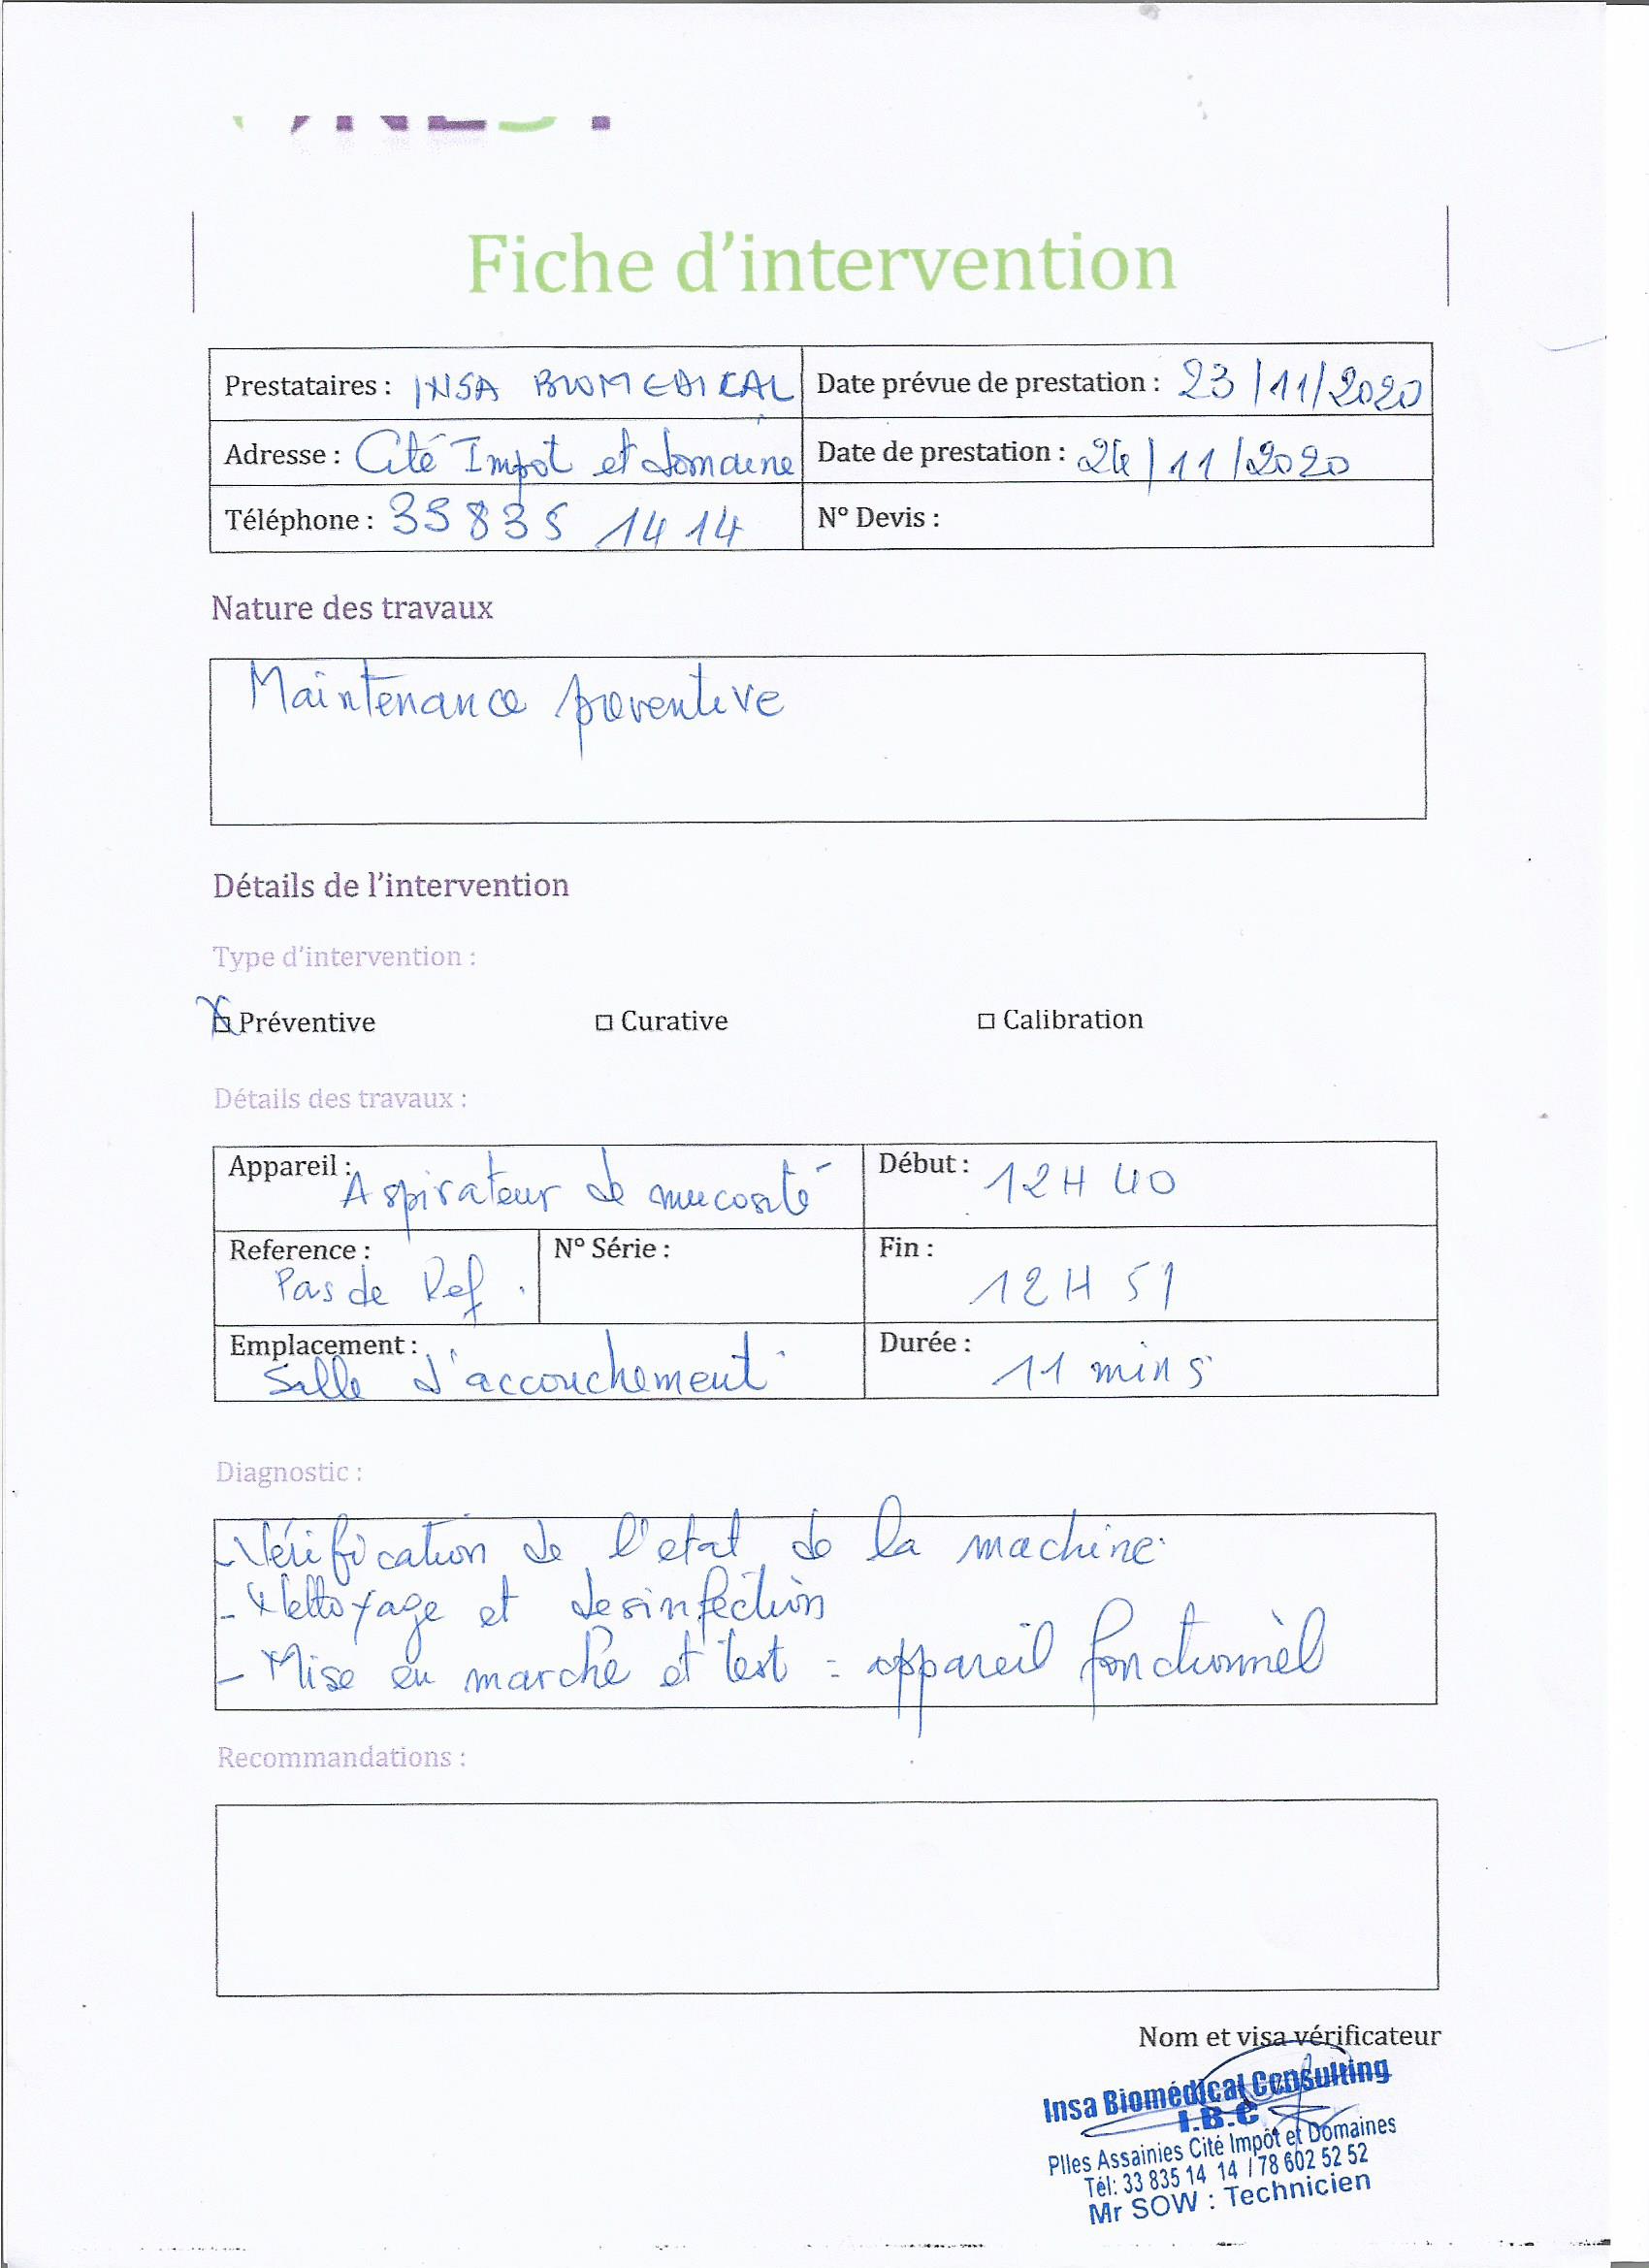 Fiche d'intervention
Prestataires : INSA BIOMEDICAL
Date prévue de prestation : 23/11/2020
Adresse : Cité Impot et domaine
Date de prestation : 24/11/2020
Téléphone : 33 835 14 14
N° Devis :
Nature des travaux
Maintenance preventive
Détails de l'intervention
Type d'intervention :
Préventive
Curative
Calibration
Détails des travaux :
Appareil : Aspirateur de mucosité
Début : 12H40
Reference : Pas de Ref.
N° Série :
Fin : 12H51
Emplacement : Salle d'accouchement
Durée : 11 mins
Diagnostic :
- Vérification de l'etat de la machine
- Nettoyage et desinfection
- Mise en marche et test = appareil fonctionnel
Recommandations :
Nom et visa vérificateur
Insa Biomédical Consulting
I.B.C
Plles Assainies Cité Impôt et Domaines
Tél: 33 835 14 14 / 78 602 52 52
Mr SOW : Technicien